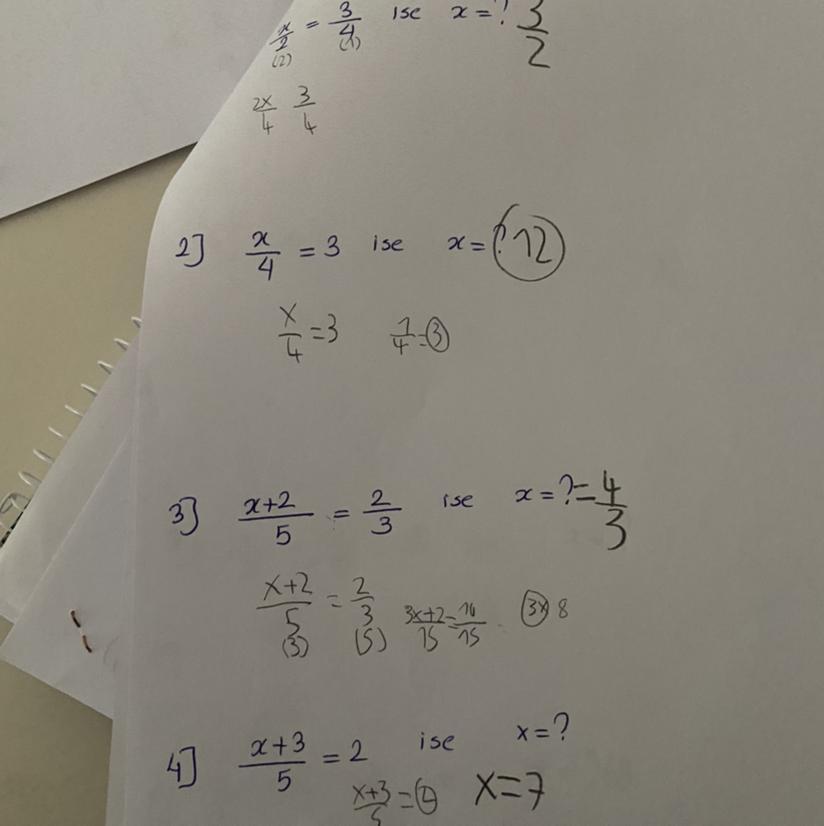 x/2 = 3/4 ise x = ? 3/2
(2) (1)
2x/4 3/4
2] x/4 = 3 ise x = ? 12
x/4 = 3 1/4 = 3
3] x+2/5 = 2/3 ise x = ? = 4/3
x+2/5 = 2/3 3x+2/15 = 10/15 3x 8
(3) (5)
4] x+3/5 = 2 ise x = ?
x+3/5 = 2 x = 7